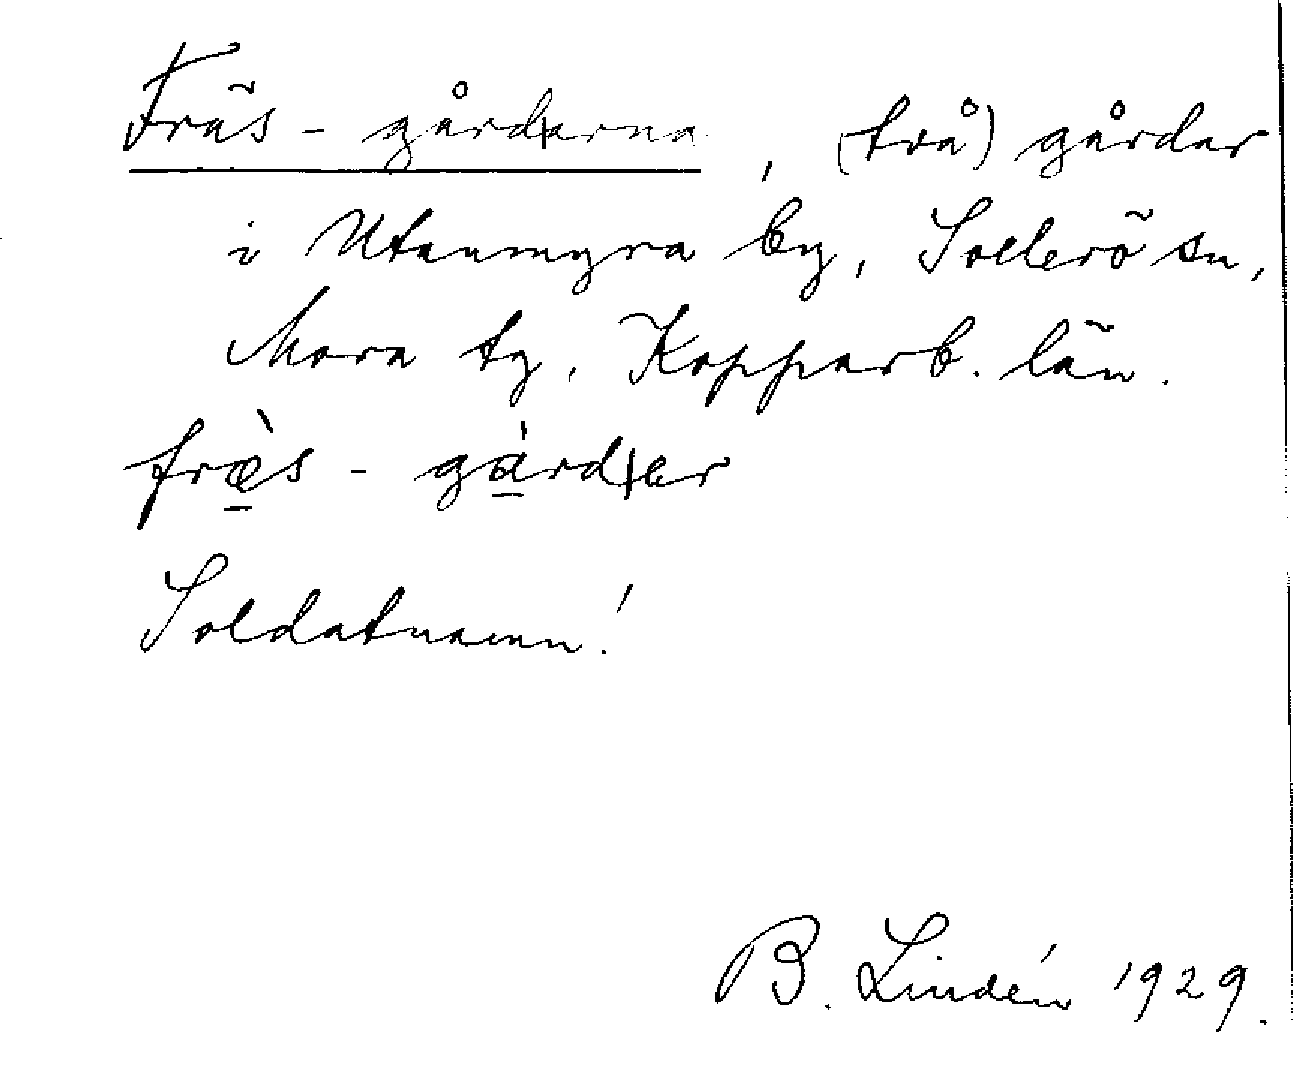 Fräs-gårdarna, (två) gårdar
i Utanmyra by, Sollerö sn,
Mora tg, Kopparb. län.
fræ̲̀s - gà̲rder
Soldatnamn!
B. Lindén 1929.